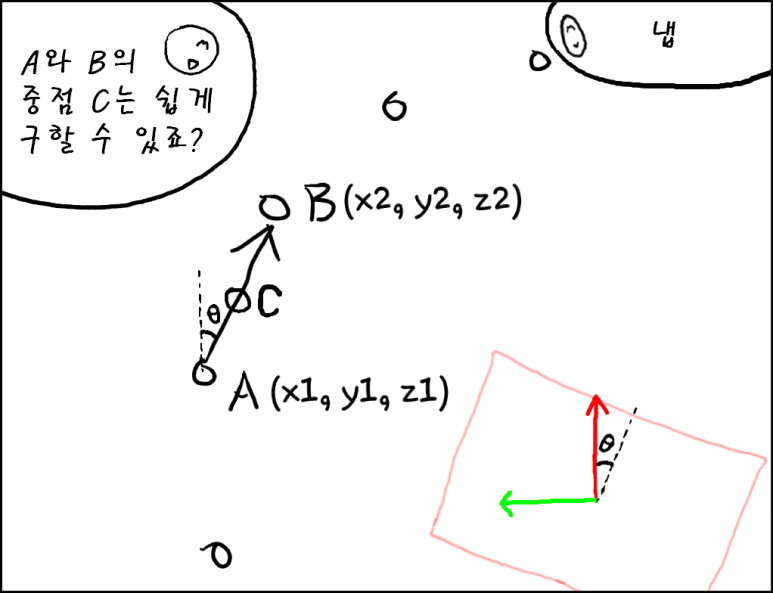 A와 B의
중점 C는 쉽게
구할 수 있죠?
냅
B(x2, y2, z2)
θ
C
A(x1, y1, z1)
θ